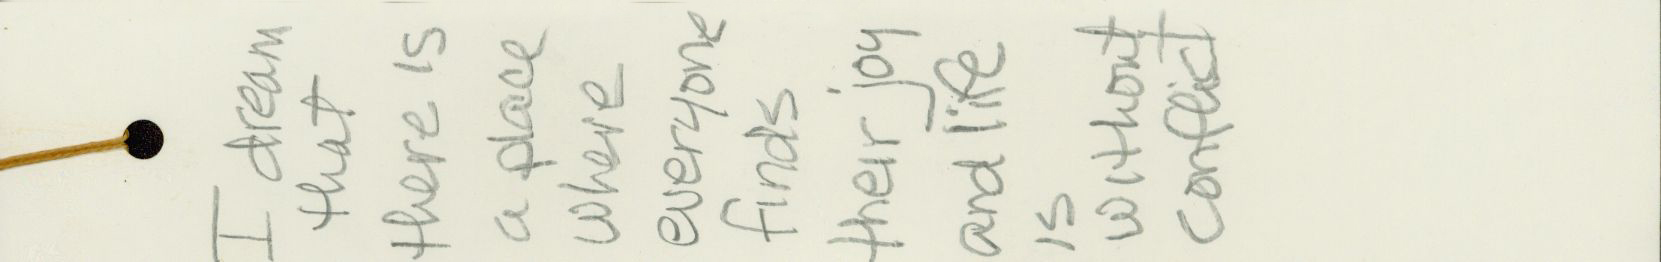 I dream
that
there is
a place
where
everyone
finds
their joy
and life
is
without
conflict